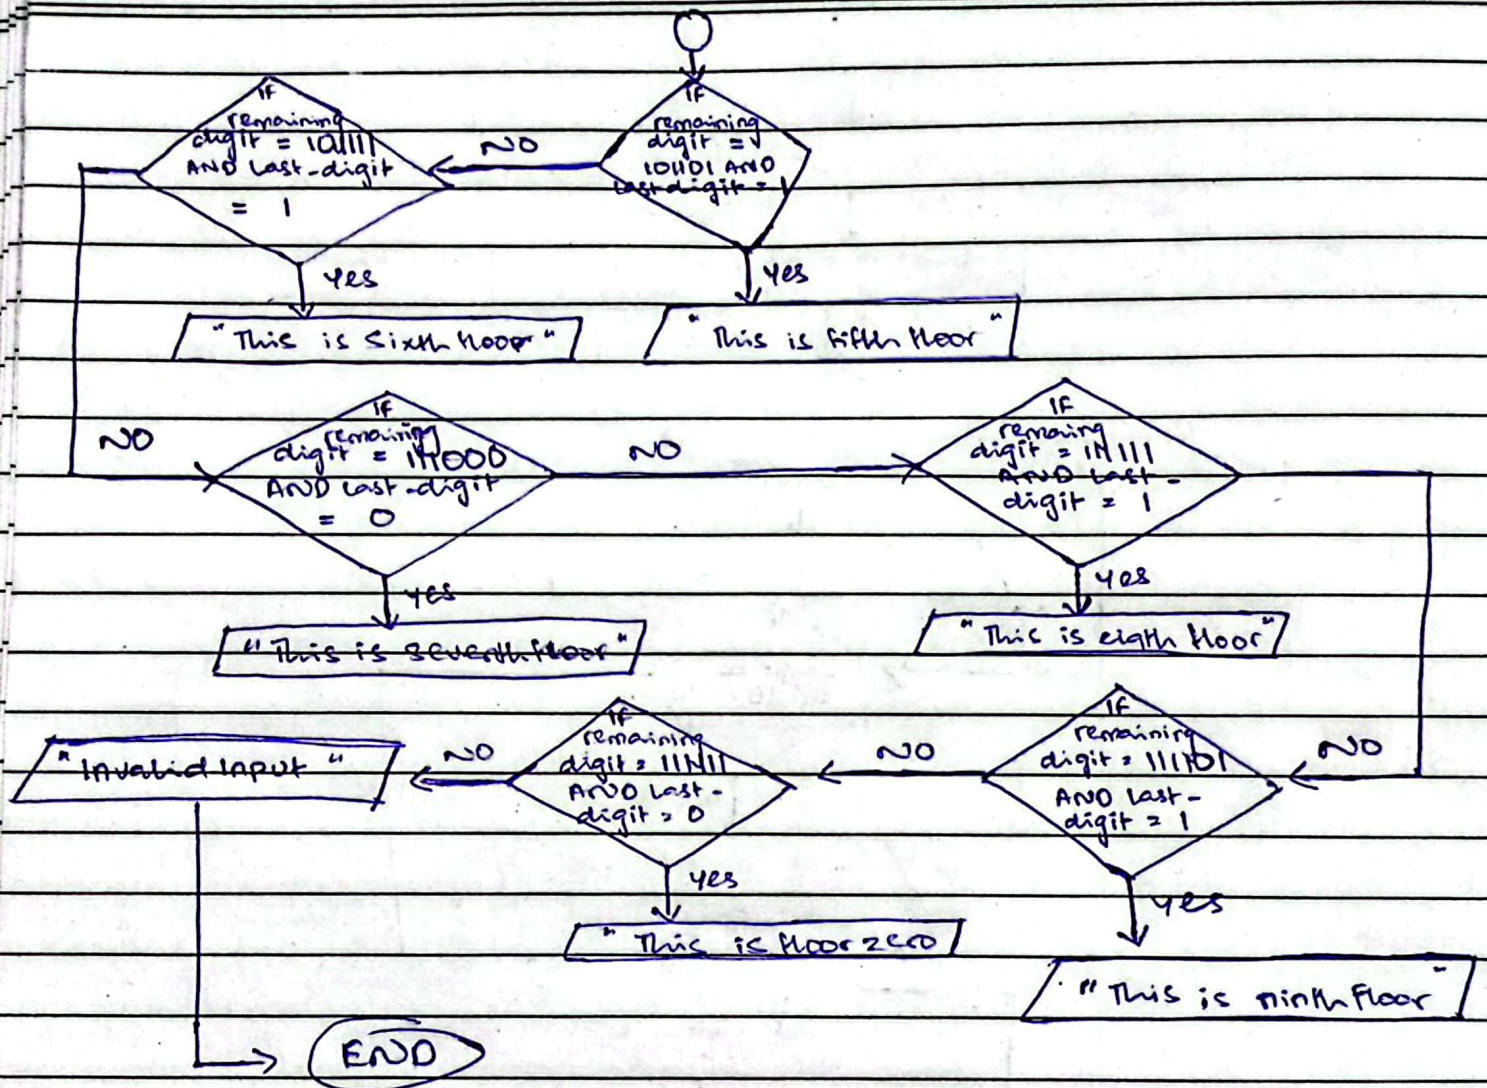 IF
remaining
digit =
101101 AND
last digit = 1
NO
yes
"This is fifth floor"
IF
remaining
digit = 101111
AND last-digit
= 1
yes
"This is sixth floor"
NO
IF
remaining
digit = 111000
AND last-digit
= 0
yes
"This is seventh floor"
NO
IF
remaining
digit = 111111
AND last-
digit = 1
yes
"This is eigth floor"
NO
IF
remaining
digit = 111101
AND last-
digit = 1
yes
"This is ninth floor"
NO
IF
remaining
digit = 111111
AND last-
digit = 0
yes
"This is floor zero
NO
"Invalid Input"
END